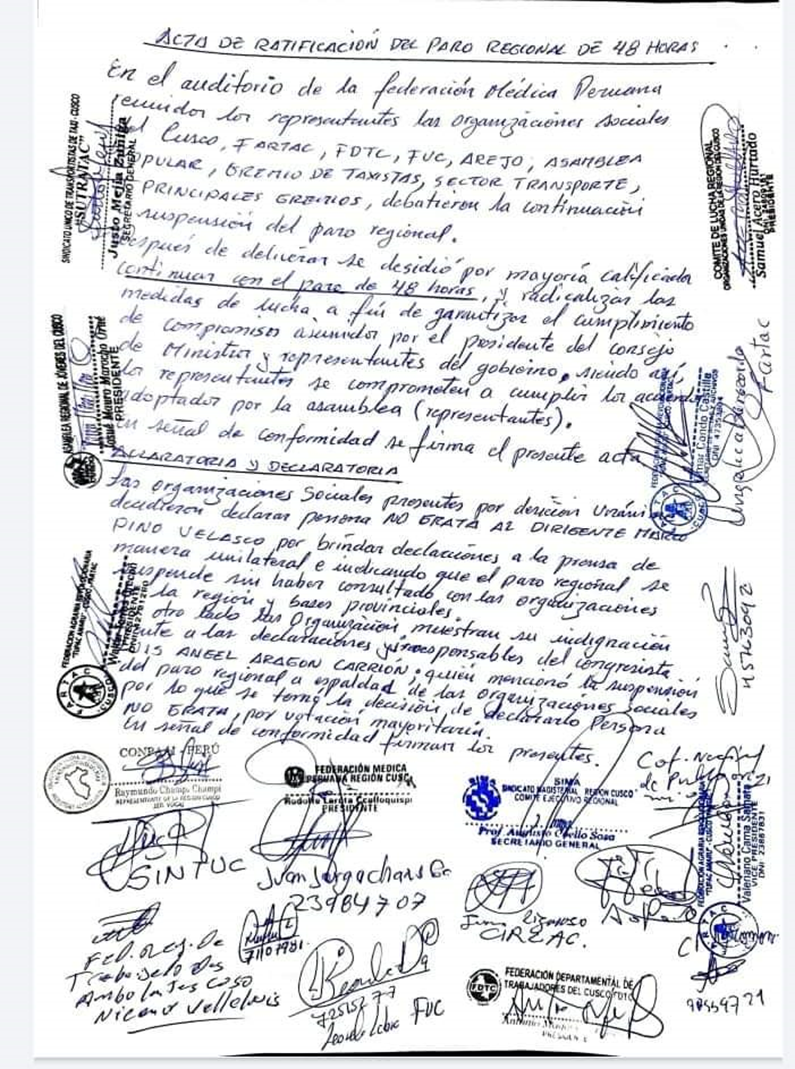 ACTA DE RATIFICACIÓN DEL PARO REGIONAL DE 48 HORAS
En el auditorio de la federación Médica Peruana
reunidos los representantes las organizaciones sociales
del Cusco, FARTAC, FDTC, FUC, AREJO, ASAMBLEA
POPULAR, GREMIO DE TAXISTAS, SECTOR TRANSPORTE,
PRINCIPALES GREMIOS, debatieron la continuación
suspensión del paro regional.
Después de deliverar se desidió por mayoría calificada
continuar con el paro de 48 horas, y radicalizar las
medidas de lucha a fín de garantizar el cumplimiento
de compromisos asumidos por el presidente del consejo
de Ministros y representantes del gobierno, siendo así,
los representantes se comprometen a cumplir los acuerdos
adoptados por la asamblea (representantes).
En señal de conformidad se firma el presente acta
ACLARATORIA Y DECLARATORIA
Las organizaciones Sociales presentes por desición
decidieron declarar persona NO GRATA AL DIRIGENTE MARIO
PINO VELASCO por brindar declaraciones a la prensa de
manera unilateral e indicando que el paro regional se
suspende sin haber consultado con las organizaciones
de la región y bases provinciales.
otro lado las Organización muestran su indignación
frente a las declaraciones irresponsables del congresista
LUIS ANGEL ARAGON CARRIÓN, quién mencionó la suspensión
del paro regional a espaldad de las organizaciones sociales
por lo que se tomó la decisión de declararlo Persona
NO GRATA, por votación mayoritaria.
En señal de conformidad firman los presentes.
SINDICATO UNICO DE TRANSPORTISTAS DE TAXI - CUSCO
"SUTRATAC"
Justo Mejia Zuñiga
SECRETARIO GENERAL
COMITE DE LUCHA REGIONAL
Samuel Acero Hurtado
PRESIDENTE
ASAMBLEA REGIONAL DE JÓVENES DEL CUSCO
Josué Mauro Marocho Orué
PRESIDENTE
Condo Castillo
Fartac
FEDERACION AGRARIA REVOLUCIONARIA
"TUPAC AMARU" - CUSCO - FARTAC
PRESIDENTE
FARTAC
CUSCO
45763092
CONPAAM PERÚ
Raymundo Champi Champi
FEDERACIÓN MEDICA
PERUANA REGIÓN CUSCO
Ccalloquispe
PRESIDENTE
SIMA
SINDICATO MAGISTERIAL REGION CUSCO
COMITE EJECUTIVO REGIONAL
Sosa
SECRETARIO GENERAL
Valeriano Cama
VICE PRESIDENTE
DNI: 23867831
SINTUC
23984707
71107981
Fed. Reg. De
Ambulantes Cusco
72515277
FUC
FEDERACIÓN DEPARTAMENTAL DE
TRABAJADORES DEL CUSCO FDTC
FDTC